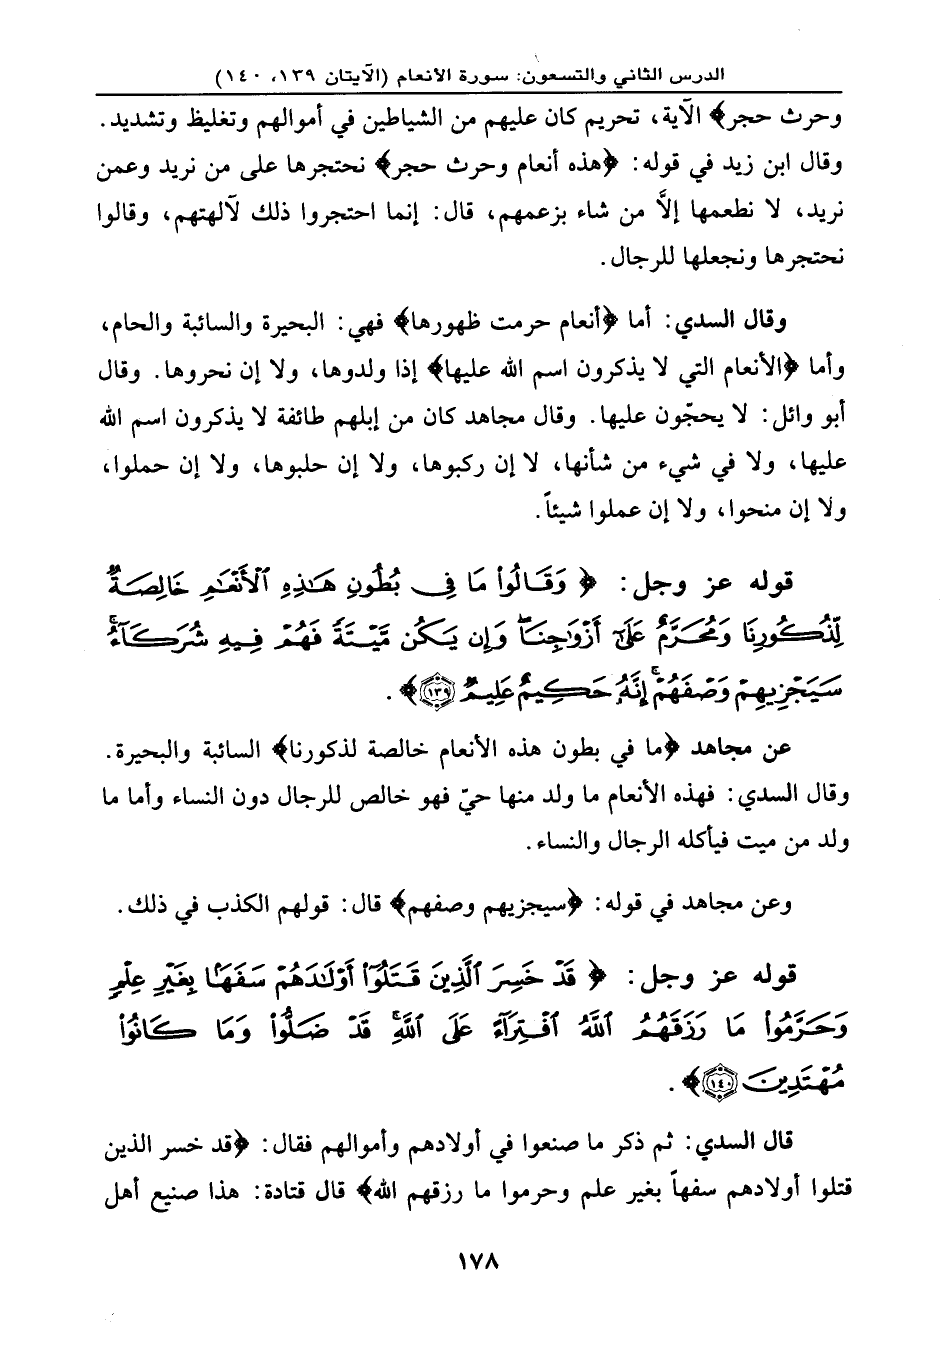 الدرس الثاني والتسعون: سورة الأنعام (الآيتان ١٣٩، ١٤٠)
وحرث حجر﴾ الآية، تحريم كان عليهم من الشياطين في أموالهم وتغليظ وتشديد.
وقال ابن زيد في قوله: ﴿هذه أنعام وحرث حجر﴾ نحتجرها على من نريد وعمن
نريد، لا نطعمها إلَّا من شاء بزعمهم، قال: إنما احتجروا ذلك لآلهتهم، وقالوا
نحتجرها ونجعلها للرجال.
وقال السدي: أما ﴿أنعام حرمت ظهورها﴾ فهي: البحيرة والسائبة والحام،
وأما ﴿الأنعام التي لا يذكرون اسم الله عليها﴾ إذا ولدوها، ولا إن نحروها. وقال
أبو وائل: لا يحجّون عليها. وقال مجاهد كان من إبلهم طائفة لا يذكرون اسم الله
عليها، ولا في شيء من شأنها، لا إن ركبوها، ولا إن حلبوها، ولا إن حملوا،
ولا إن منحوا، ولا إن عملوا شيئاً.
قوله عز وجل: ﴿ وَقَالُوا۟ مَا فِى بُطُونِ هَـٰذِهِ ٱلْأَنْعَـٰمِ خَالِصَةٌ
لِّذُكُورِنَا وَمُحَرَّمٌ عَلَىٰٓ أَزْوَٰجِنَا ۖ وَإِن يَكُن مَّيْتَةً فَهُمْ فِيهِ شُرَكَآءُ ۚ
سَيَجْزِيهِمْ وَصْفَهُمْ ۚ إِنَّهُۥ حَكِيمٌ عَلِيمٌ ١٣٩﴾.
عن مجاهد ﴿ما في بطون هذه الأنعام خالصة لذكورنا﴾ السائبة والبحيرة.
وقال السدي: فهذه الأنعام ما ولد منها حيّ فهو خالص للرجال دون النساء وأما ما
ولد من ميت فيأكله الرجال والنساء.
وعن مجاهد في قوله: ﴿سيجزيهم وصفهم﴾ قال: قولهم الكذب في ذلك.
قوله عز وجل: ﴿ قَدْ خَسِرَ ٱلَّذِينَ قَتَلُوٓا۟ أَوْلَـٰدَهُمْ سَفَهًۢا بِغَيْرِ عِلْمٍ
وَحَرَّمُوا۟ مَا رَزَقَهُمُ ٱللَّهُ ٱفْتِرَآءً عَلَى ٱللَّهِ ۚ قَدْ ضَلُّوا۟ وَمَا كَانُوا۟
مُهْتَدِينَ ١٤٠﴾.
قال السدي: ثم ذكر ما صنعوا في أولادهم وأموالهم فقال: ﴿قد خسر الذين
قتلوا أولادهم سفهاً بغير علم وحرموا ما رزقهم الله﴾ قال قتادة: هذا صنيع أهل
١٧٨